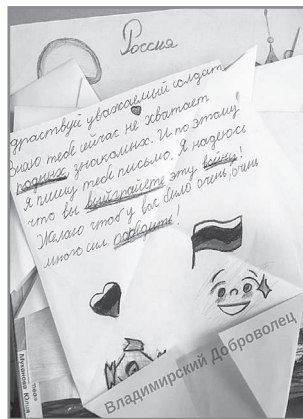 Россия
дравствуй уважаемый солдат
Знаю тебе сейчас не хватает
родных, знакомых. И по этому
я пишу тебе письмо. Я надеюсь
что вы выиграйете эту войну!
Желаю чтоб у вас было очень, очень
много сил победить!
Владимирский Доброволец
Муханова Юлия